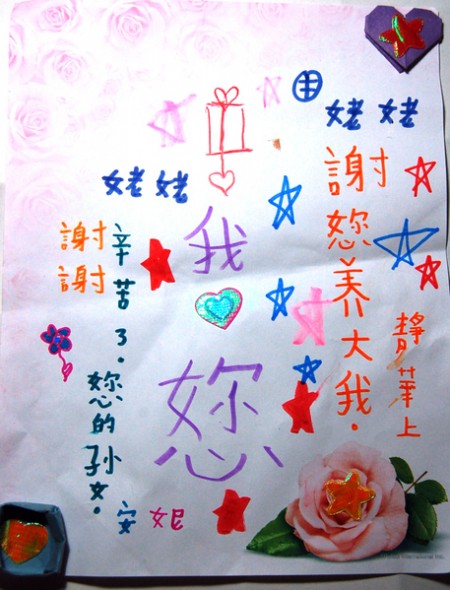 姥姥
謝您养大我.
靜華上
我
您
姥姥
謝謝
辛苦了.您的孙女.
安妮